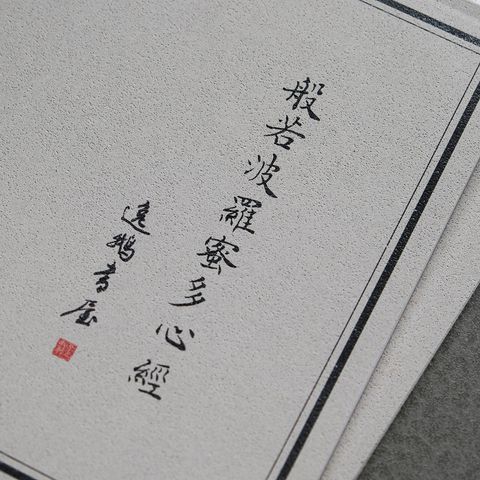 般若波羅蜜多心經
遠鵝書屋